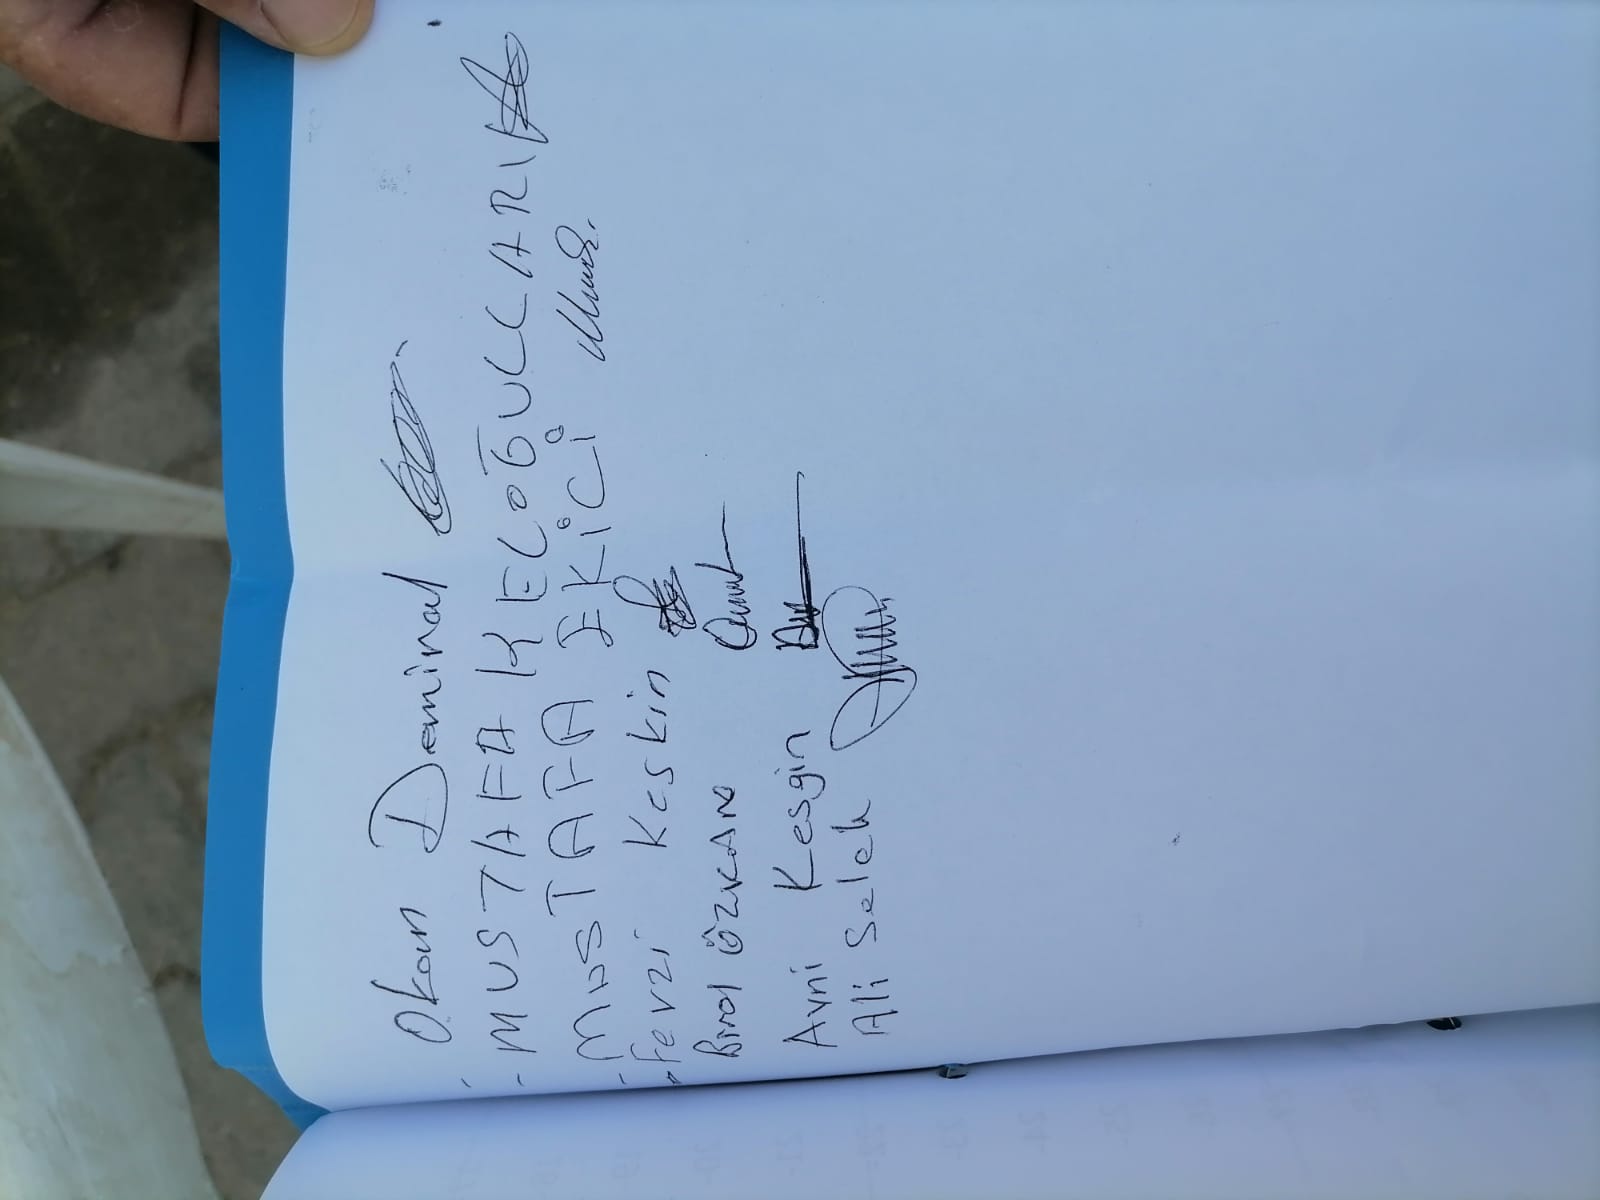 - Okan Demiral
- MUSTAFA KELOĞULLARI
- MUSTAFA EKİCİ
- Fevzi Keskin
Birol ÖZKAN
Avni Kesgin
Ali Selek